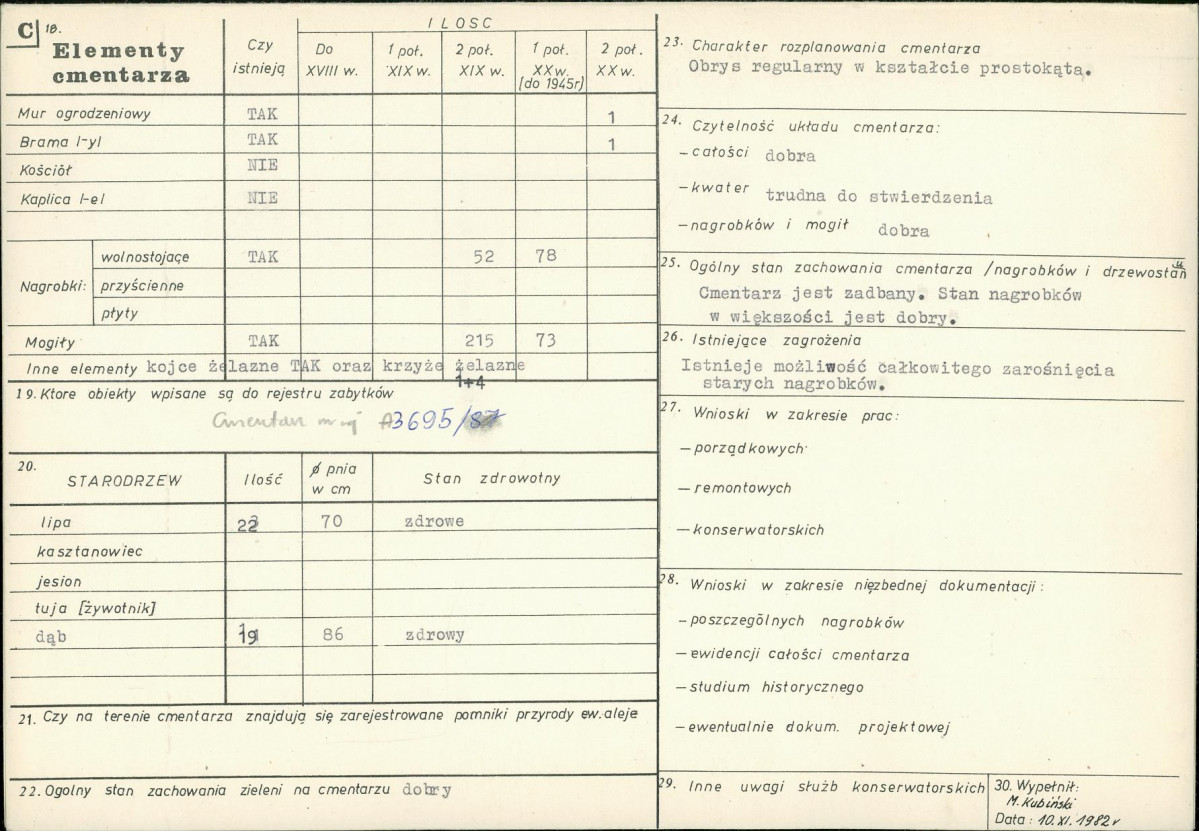 C 18.
Elementy
cmentarza
Czy
istnieją
ILOSC
Do
XVIII w.
1 poł.
XIX w.
2 poł.
XIX w.
1 poł.
XX w.
[do 1945r]
2 poł.
XX w.
Mur ogrodzeniowy TAK 1
Brama /-y/ TAK 1
Kościół NIE
Kaplica /-e/ NIE
Nagrobki:
wolnostojące TAK 52 78
przyścienne
płyty
Mogiły TAK 215 73
Inne elementy kojce żelazne TAK oraz krzyże żelazne
1+4
19. Ktore obiekty wpisane są do rejestru zabytków
A3695/
20.
STARODRZEW
Ilość
ø pnia
w cm
Stan zdrowotny
lipa 70 zdrowe
kasztanowiec
jesion
tuja [żywotnik]
dąb 86 zdrowy
21. Czy na terenie cmentarza znajdują się zarejestrowane pomniki przyrody ew. aleje
22. Ogolny stan zachowania zieleni na cmentarzu dobry
23. Charakter rozplanowania cmentarza
Obrys regularny w kształcie prostokąta.
24. Czytelność układu cmentarza:
– całości dobra
– kwater trudna do stwierdzenia
– nagrobków i mogił dobra
25. Ogólny stan zachowania cmentarza /nagrobków i drzewostan
Cmentarz jest zadbany. Stan nagrobków
w większości jest dobry.
26. Istniejące zagrożenia
Istnieje możliwość całkowitego zarośnięcia
starych nagrobków.
27. Wnioski w zakresie prac:
– porządkowych
– remontowych
– konserwatorskich
28. Wnioski w zakresie nięzbednej dokumentacji:
– poszczególnych nagrobków
– ewidencji całości cmentarza
– studium historycznego
– ewentualnie dokum. projektowej
29. Inne uwagi służb konserwatorskich
30. Wypełnił:
M. Kubiński
Data: 10.XI.1982 r